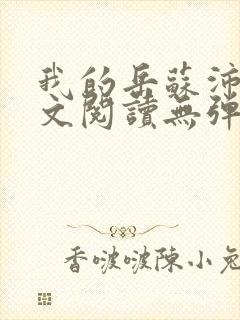 我的岳蘇沛
文閱讀無彈
香啵啵陳小兔